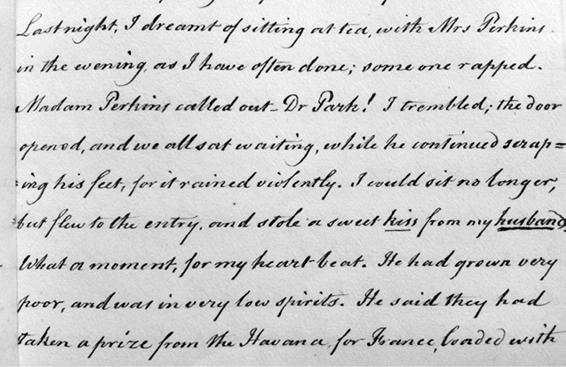 Last night, I dreamt of sitting at tea, with Mrs Perkins
in the evening, as I have often done; some one rapped.
Madam Perkins called out - Dr Park! I trembled; the door
opened, and we all sat waiting, while he continued scrap=
=ing his feet, for it rained violently. I would sit no longer,
but flew to the entry, and stole a sweet kiss from my husband,
What a moment, for my heart beat. He had grown very
poor, and was in very low spirits. He said they had
taken a prize from the Havana, for France, loaded with